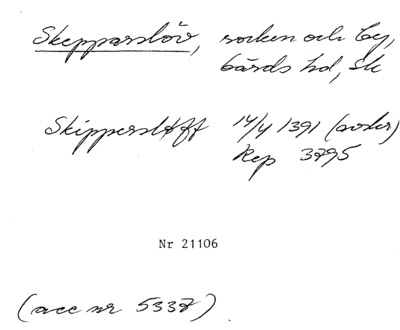 Skepparslöv, socken och by,
Gärds hd, Sk
Skipperstøff 14/4 1391 (avskr)
Rep 3795
Nr 21106
(acc nr 5337)